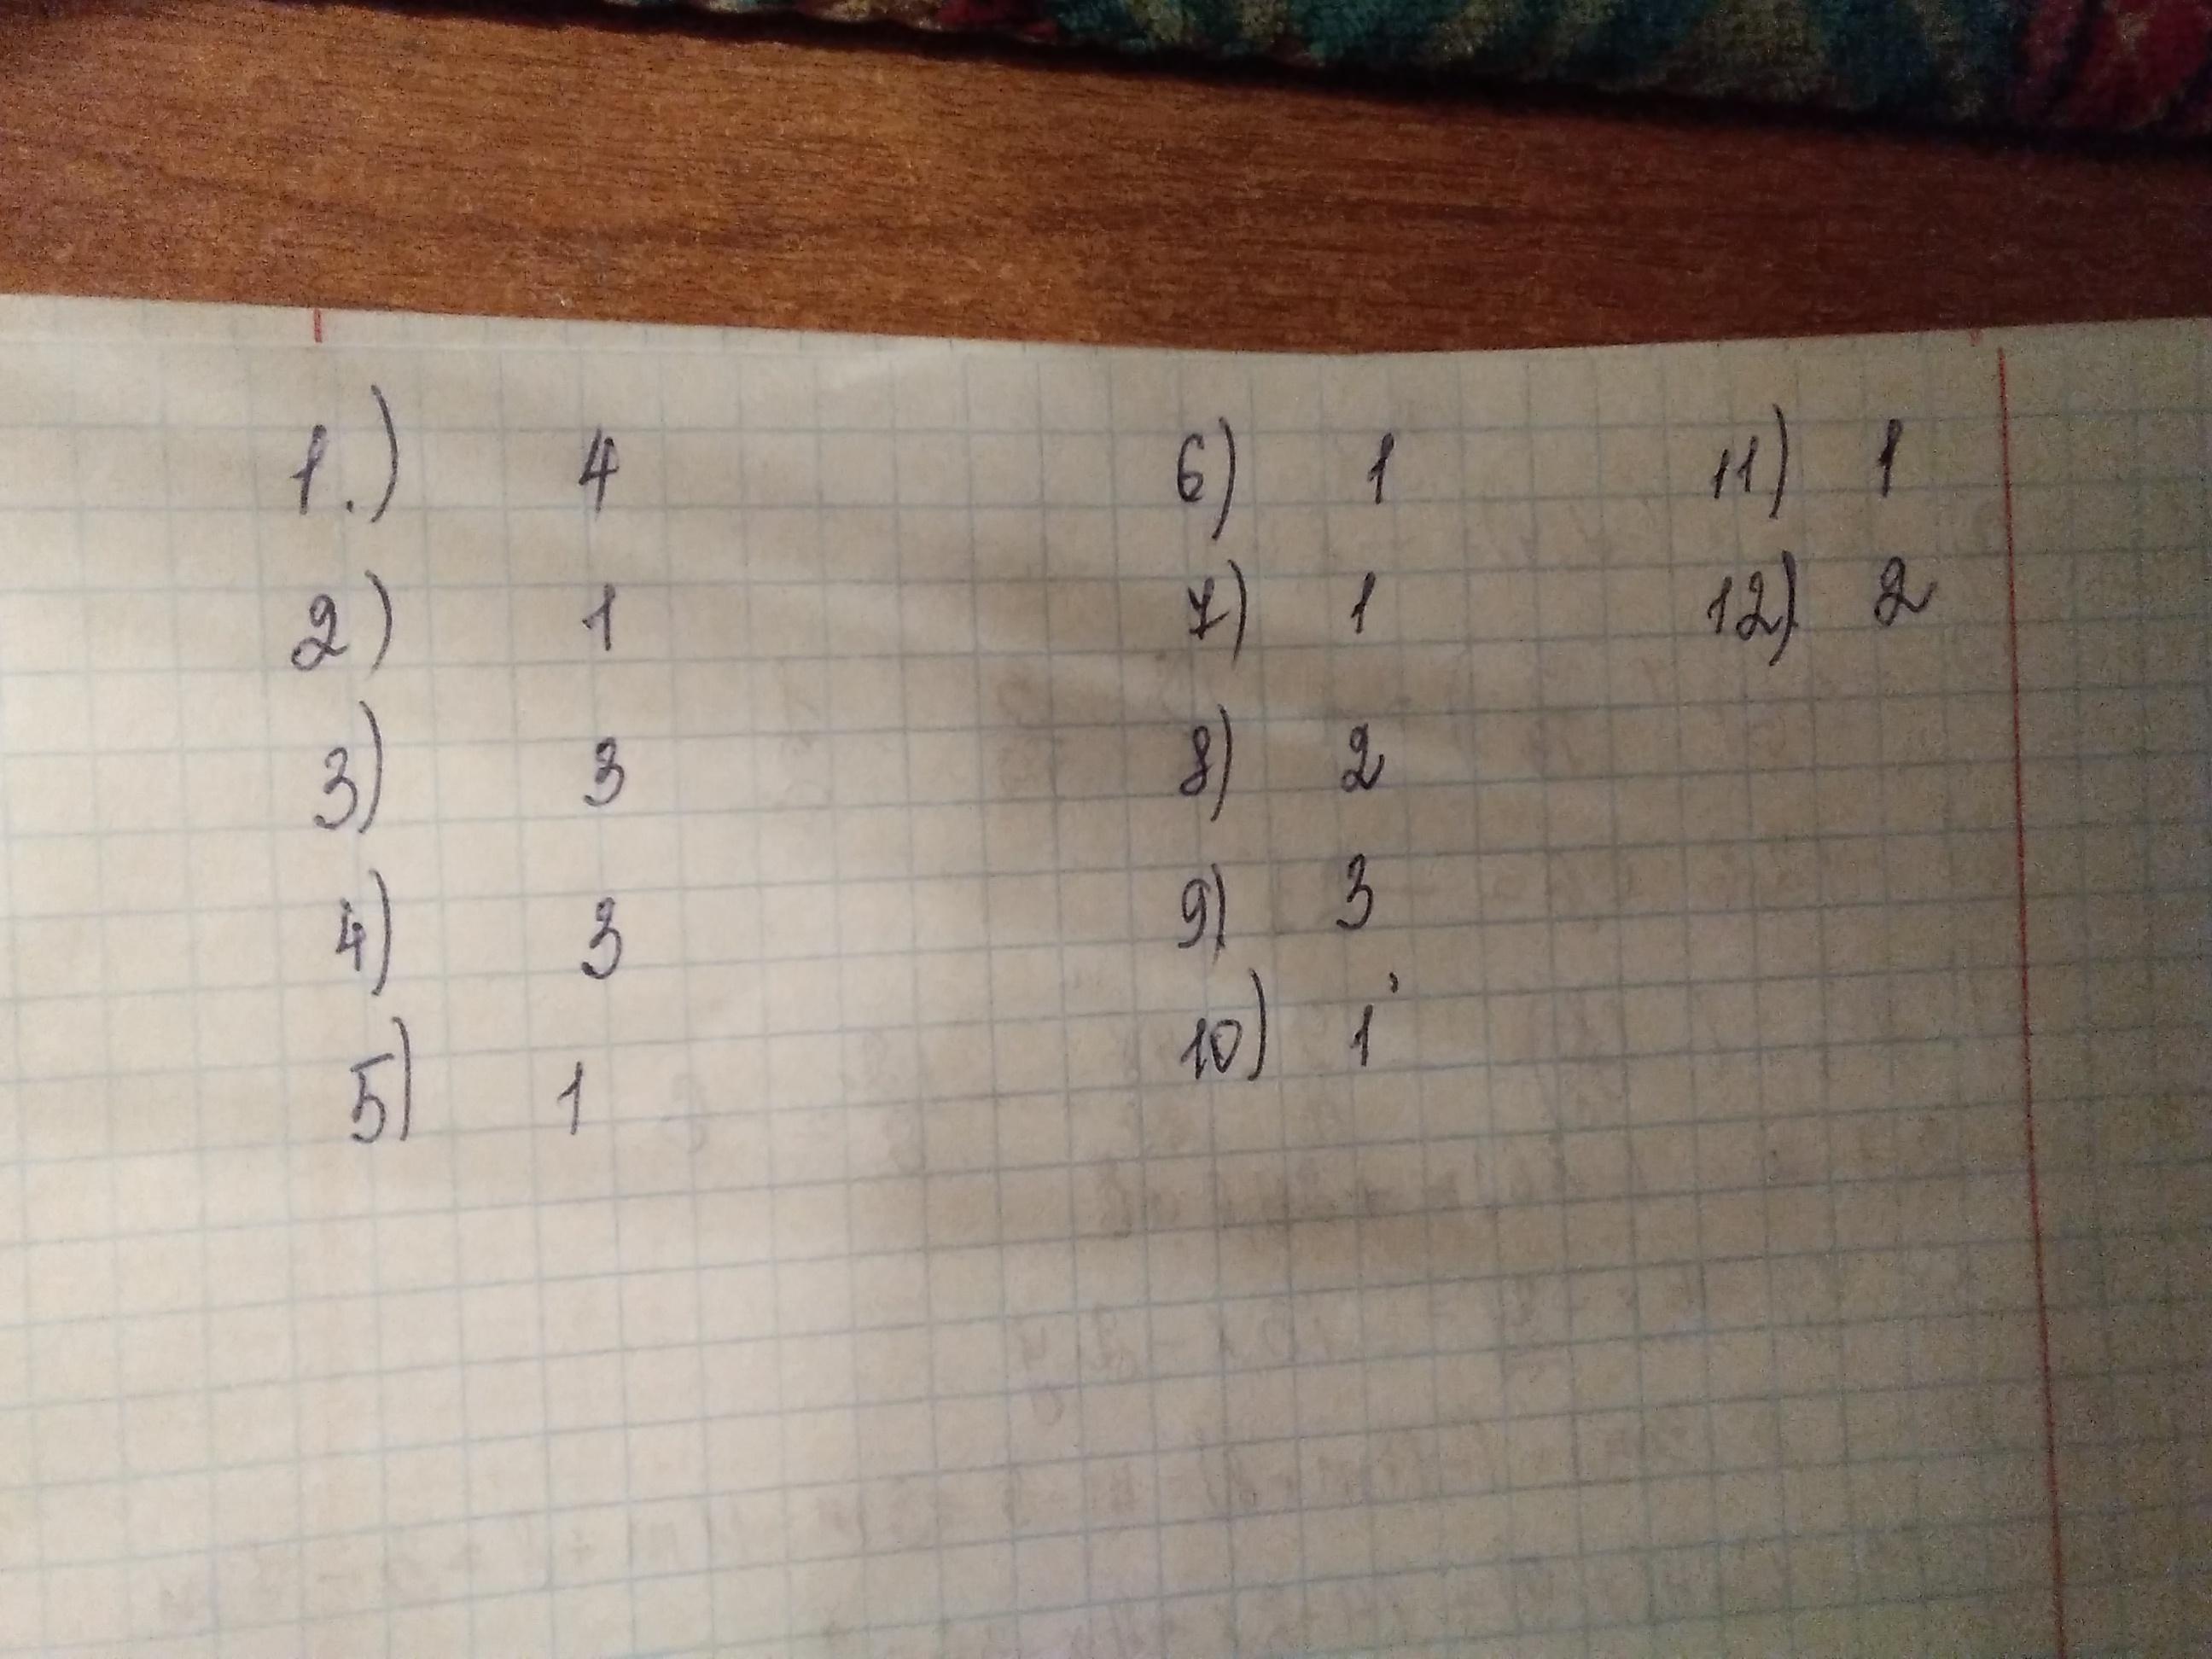 1.) 4
2) 1
3) 3
4) 3
5) 1
6) 1
7) 1
8) 2
9) 3
10) 1
11) 1
12) 2